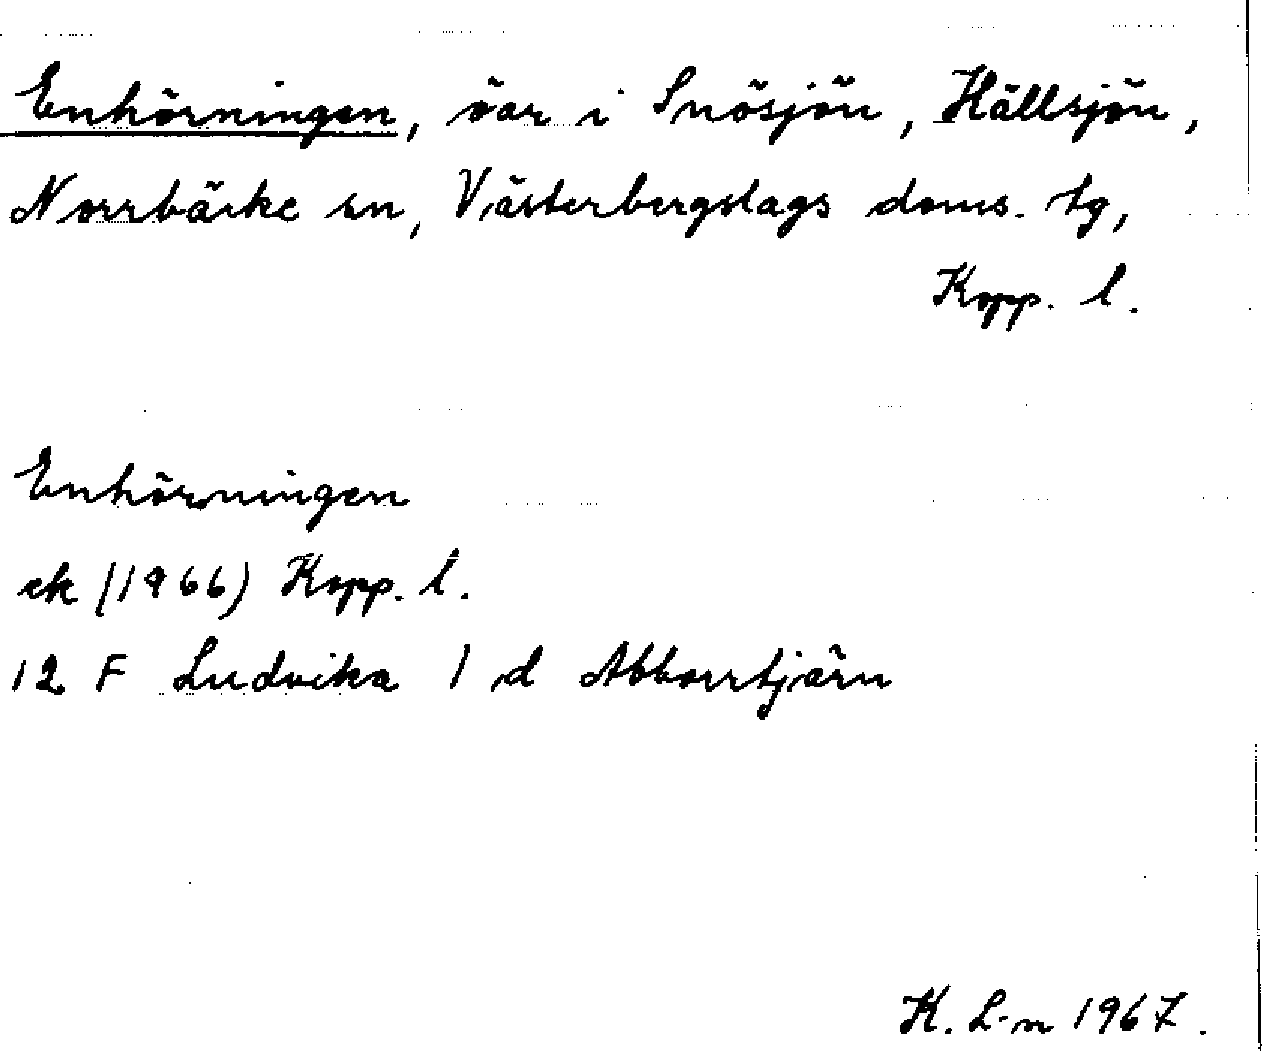 Enhörningen, öar i Snösjön, Hällsjön,
Norrbärke sn, Västerbergslags doms. tg,
Kopp. l.
Enhörningen
ek (1966) Kopp. l.
12 F Ludvika 1 d Abborrtjärn
K. L-n 1967.